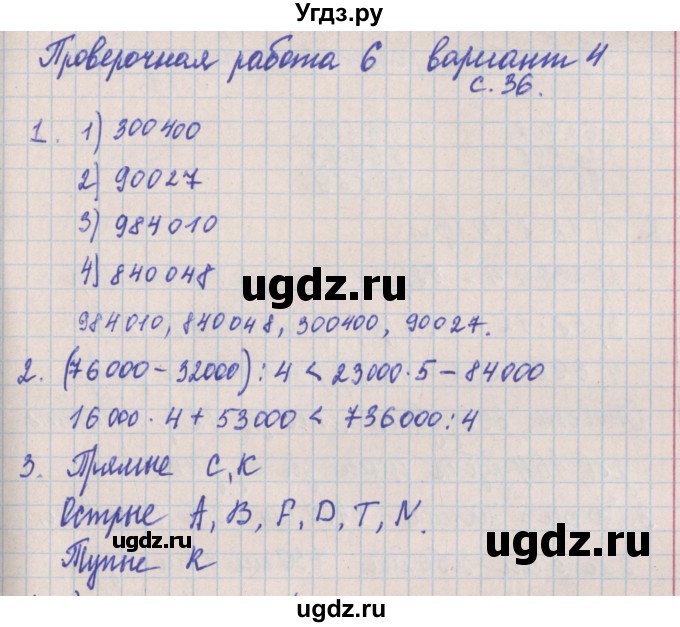 Угдз.ру
Проверочная работа 6 вариант 4
с. 36.
1. 1) 300400
2) 90027
3) 984010
4) 840048
ugdz.ru
984010, 840048, 300400, 90027.
2. (76000 – 32000) : 4 < 23000 · 5 – 84000
16000 · 4 + 53000 < 736000 : 4
3. Прямые С, К
Острые A, B, F, D, T, N.
ugdz.ru
ugdz.ru
Тупые К
ugdz.ru